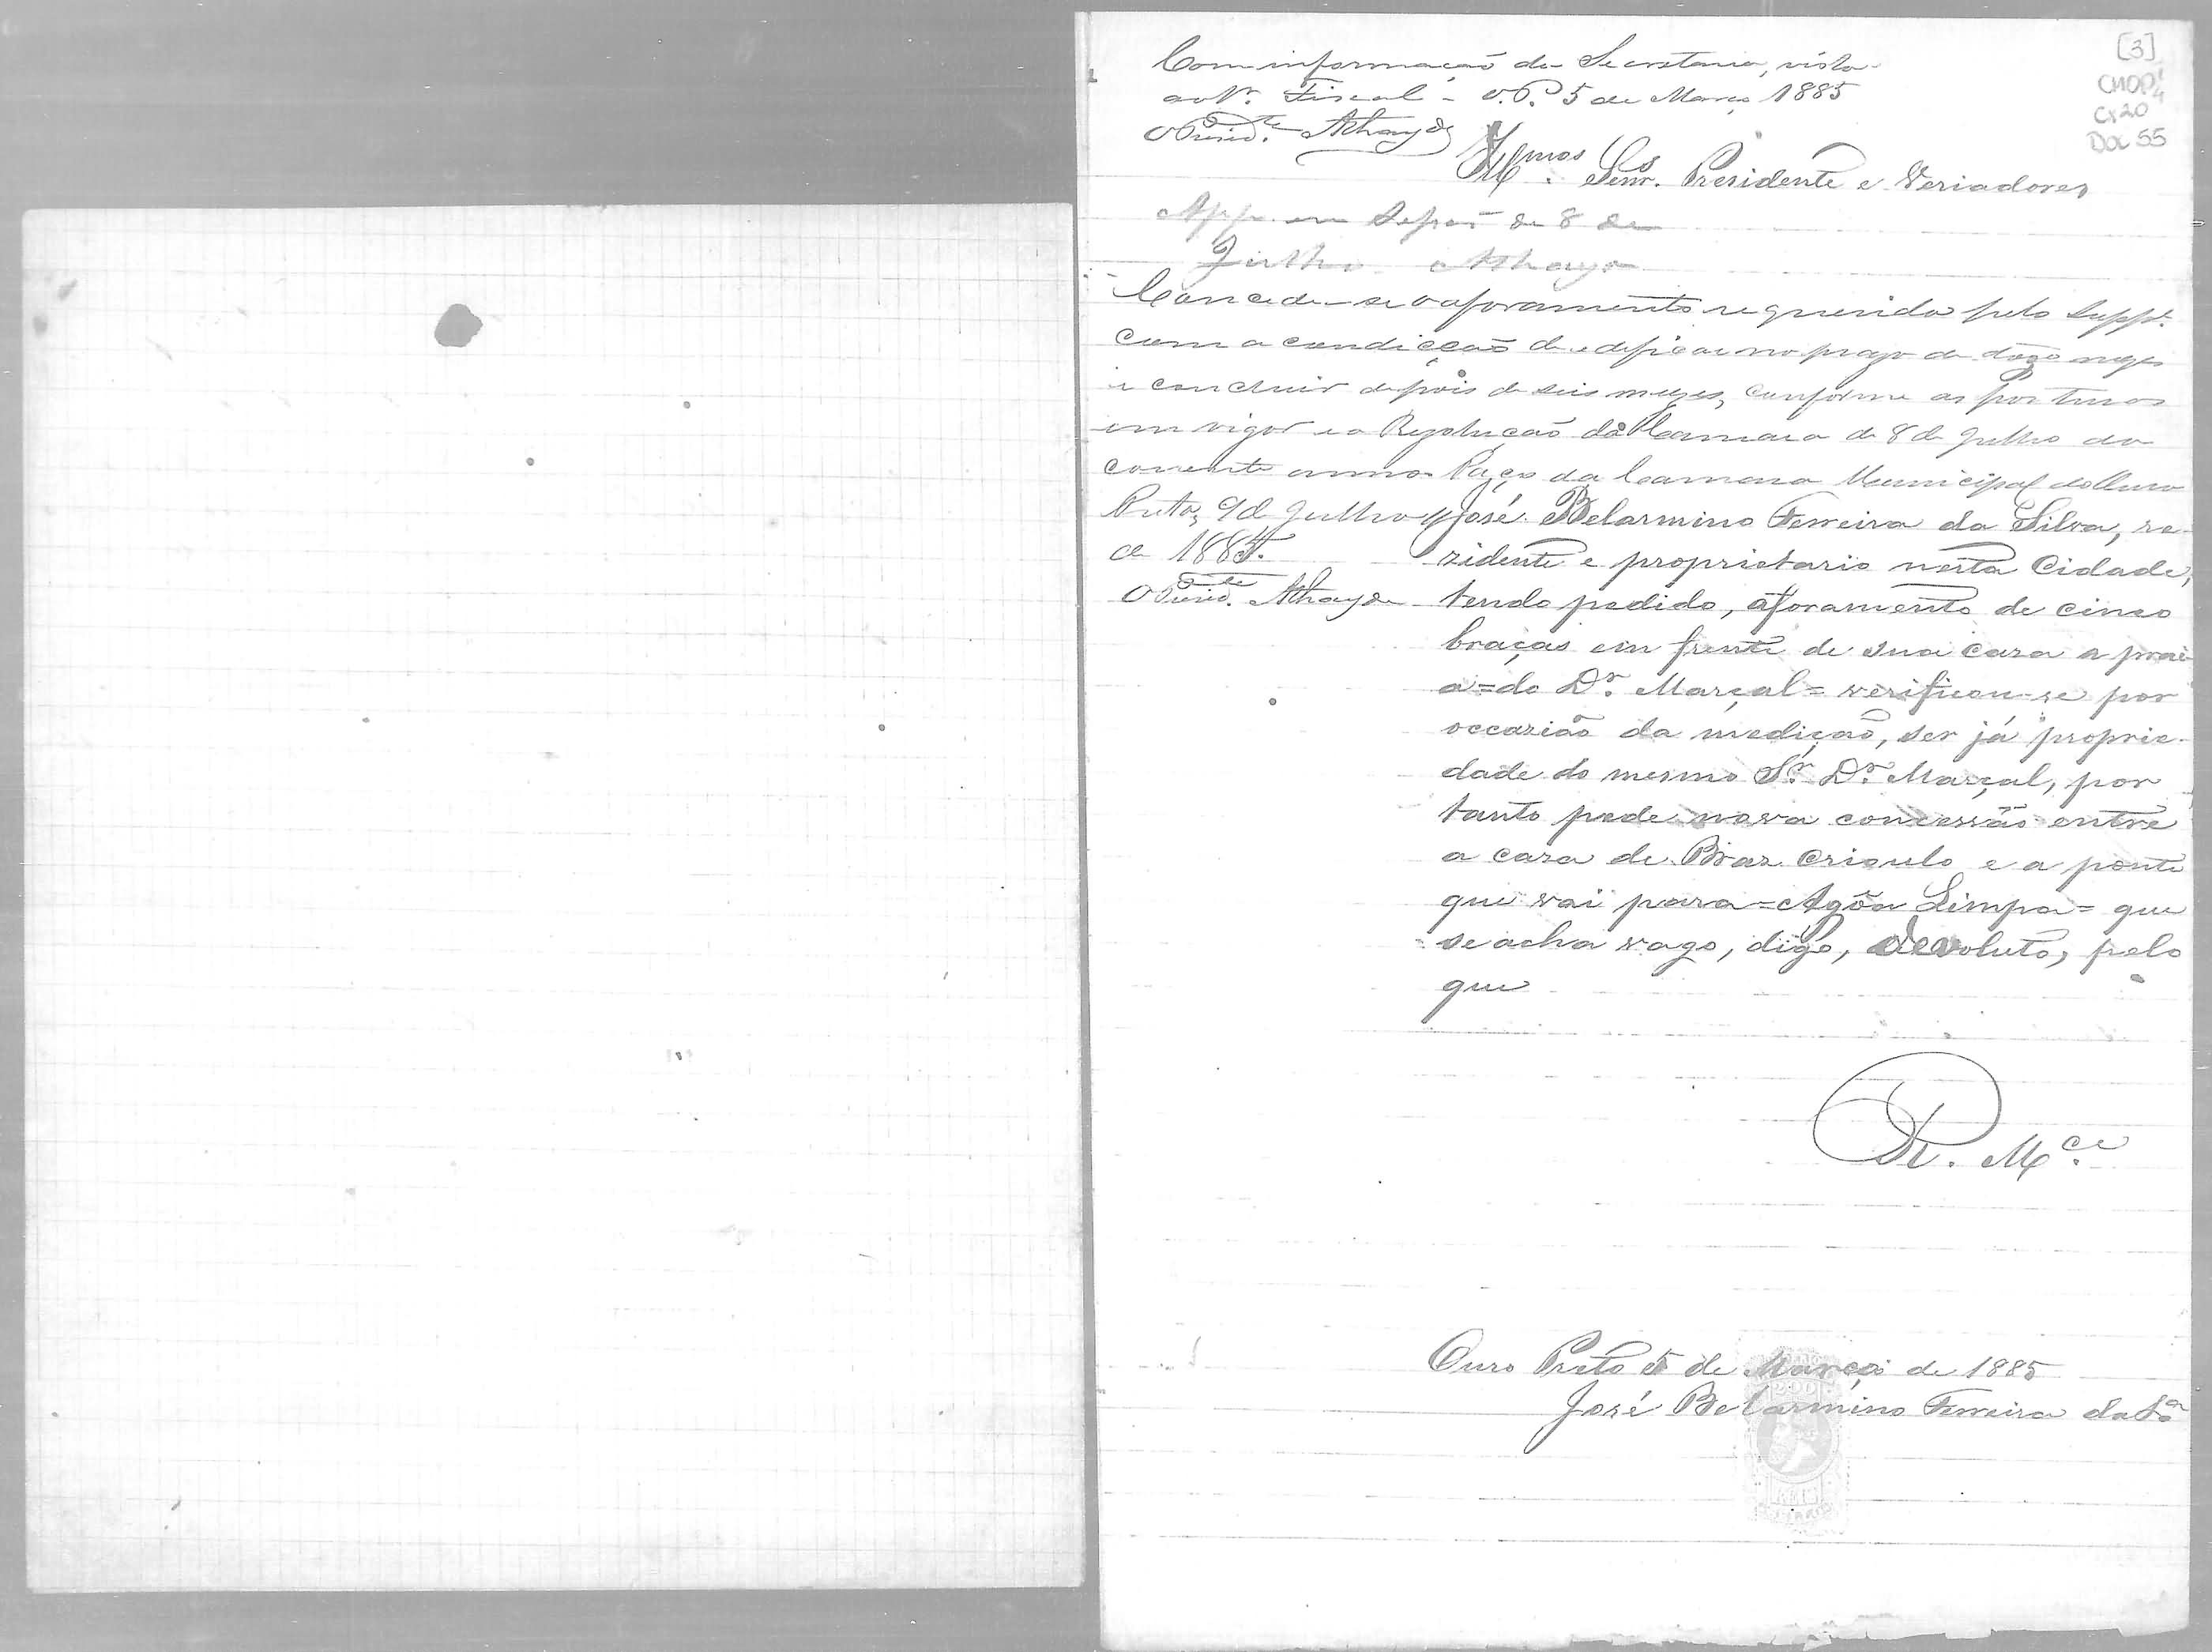 [3]
CMOP
Cx 20
Doc 55
Com informação da Secretaria, vista
ao Sr. Fiscal - O. P. 5 de Março 1885
O Presid.te Athayde
Illmos. Senrs. Presidente e Veriadores
App. em Sessão de 8 de
Julho Athayde
Concede-se o aforamento requerido pelo Supp.e
com a condicção de edificar no prazo de doze mezes
e concluir depois de seis mezes, conforme as posturas
em vigor e a Resolução da Camara de 8 de Julho do
corrente anno. Paço da Camara Municipal do Ouro
Preto, 9 de Julho
de 1885.
O Presid.te Athayde
José Belarmino Ferreira da Silva, re-
zidente e proprietario nesta Cidade,
tendo pedido, aforamento de cinco
braças em frente de sua caza a prai-
a = do Dr. Marçal = verificou-se por
occazião da medição, ser já proprie-
dade do mesmo Sr. Dr. Marçal, por
tanto pede nova concessão entre
a caza de Braz Crioulo e a ponte
que vai para = Agôa Limpa = que
se acha vago, digo, devoluto, pelo
que
P. M.ce
Ouro Preto 5 de Março de 1885
José Belarmino Ferreira da S.a